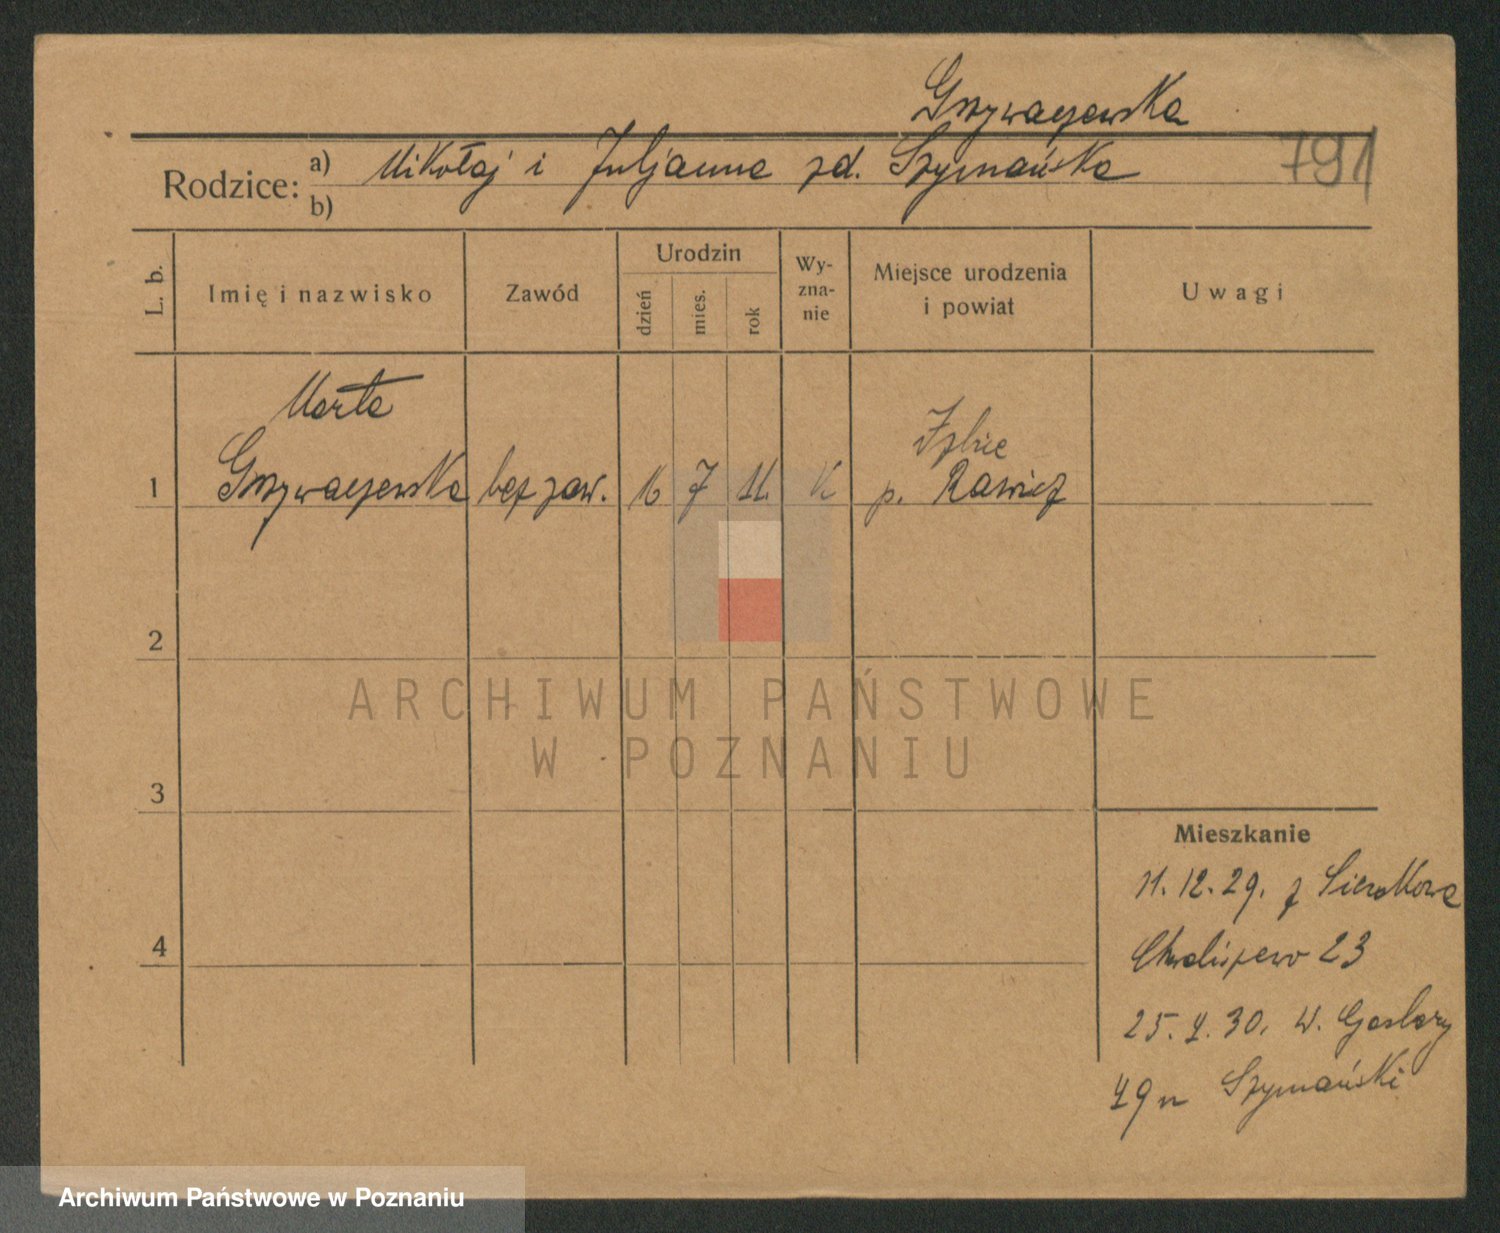 Grzywaczewska
Rodzice: a) Mikołaj i Juljanna zd. Szymańska
791
b)
L. b. Imię i nazwisko Zawód Urodzin dzień mies. rok Wy-zna-nie Miejsce urodzenia i powiat Uwagi
Marta Izbice
1 Grzywaczewska bez zaw. 16 7 11. K p. Rawicz
2
ARCHIWUM PAŃSTWOWE
W POZNANIU
3
Mieszkanie
11.12.29. z Sierakowa
4
Chwaliszewo 23
25. 4. 30. W. Garbary
49 Szymański
Archiwum Państwowe w Poznaniu